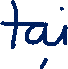 tại